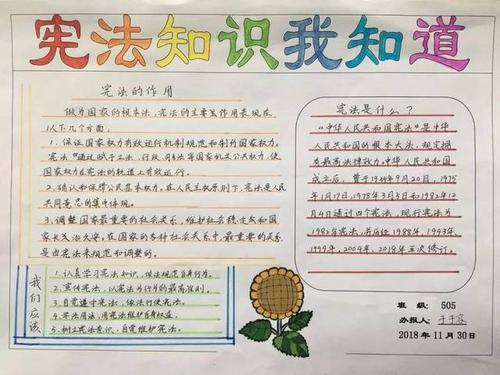 宪法知识我知道
宪法的作用
做为国家的根本法，宪法的主要发作用表现在
以下几个方面：
1.保证国家权力有效运行机制规范和制约国家权力。
宪法"通过赋予立法、行政、司法等国家机关公共权力，使
国家权力在宪法的轨道上有效运行。
2.确认和保障公民基本权力。在人民主权原则下，宪法是人民
共同意志的集中体现。
3.调整国家最重要的社会关系，维护社会稳定成和国
家长久治久安。在国家的各种社会关系中，最重要的关系
是由宪法来规范和调整的。
我们应该
1.认真学习宪法知识，依法规范自身行为。
2.宣传宪法，以宪法为行为的最高准则。
3.自觉遵守宪法，依法行使宪法。
4.学法用法，用宪法维护自身权益。
5.树立宪法意识，自觉维护宪法。
宪法是什么？
"中华人民共和国宪法"是中
华人民共和国的根本大法，规定拥
有最高法律效力。中华人民共和国
成立后，曾于1954年9月20日，1975
年1月17日，1978年3月5日和1982年12
月4日通过四个宪法，现行宪法为
1982年宪法，并历经1988年，1993年，
1999年，2004年，2018年五次修订。
班 级：505
办报人：
2018年11月30日